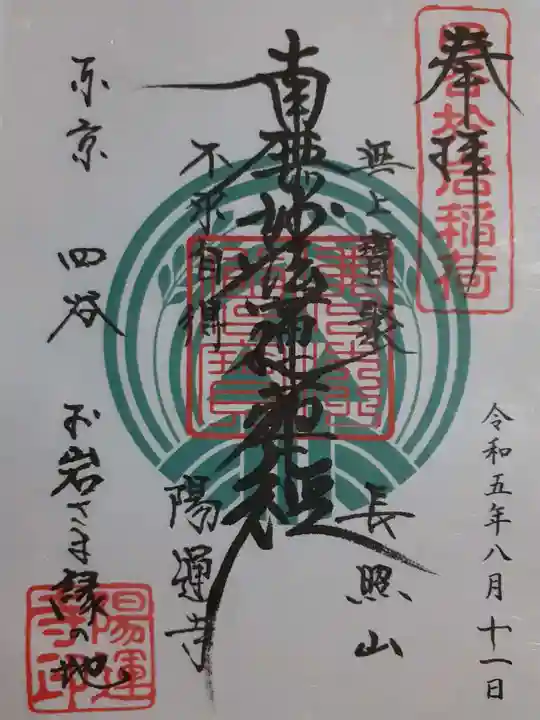 奉拝
令和五年八月十一日
無上寶聚
長照山
南無妙法蓮華経
不求自得
陽運寺
东京
四谷
お岩さま縁の地
陽運
寺印